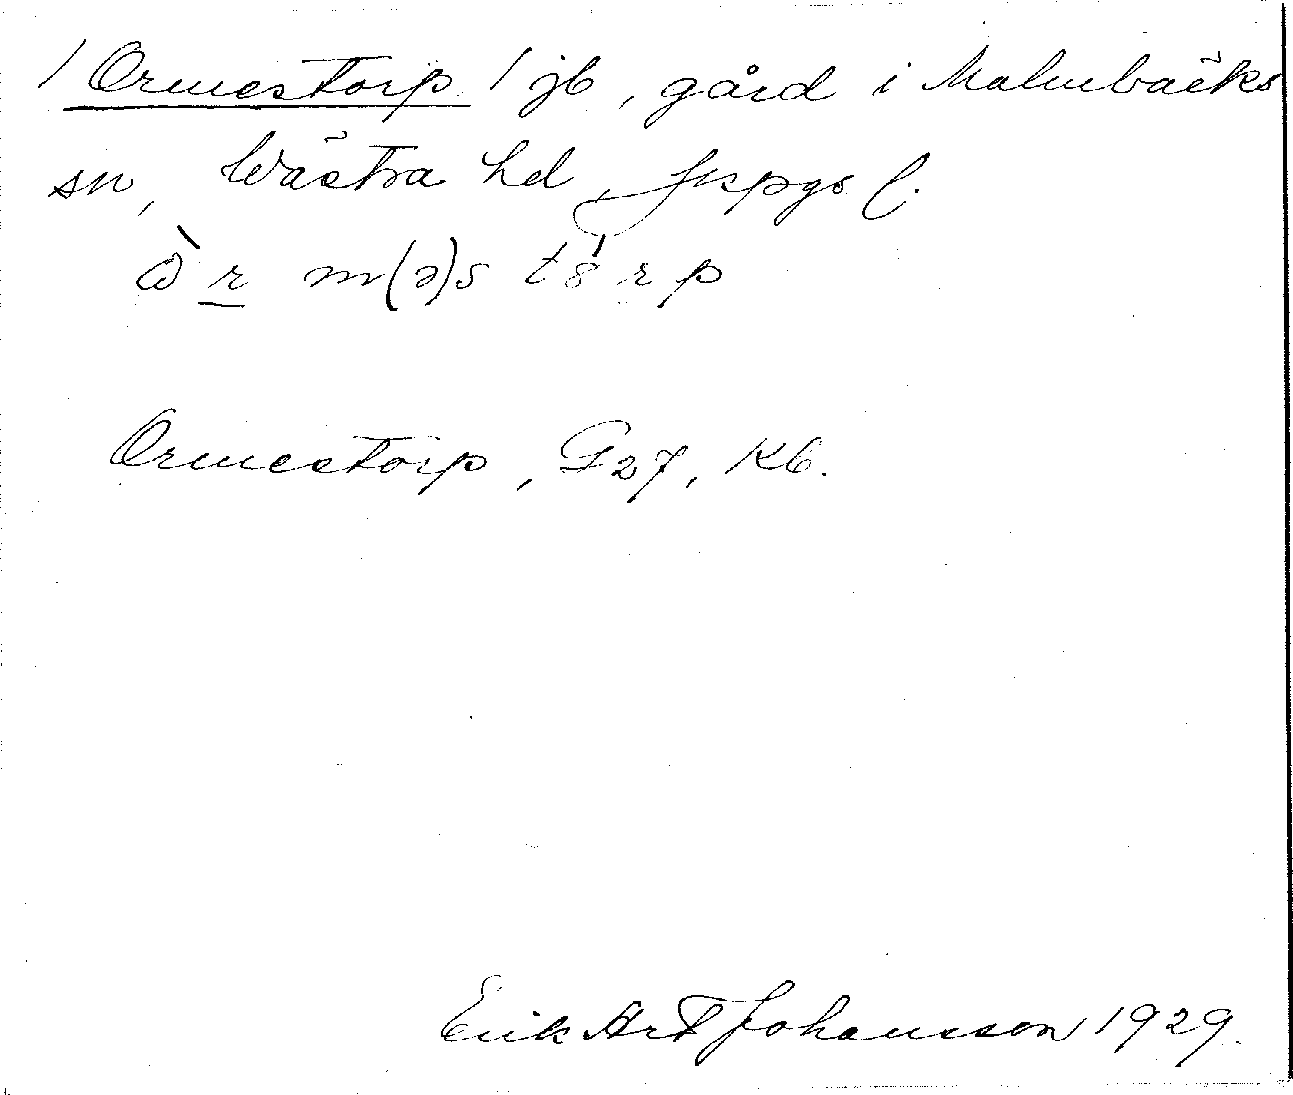 / Ormestorp / jb, gård i Malmbäcks
sn, Västra hd, Jkpgs l.
ɷ̀ r m(ə)s t8́ r p
Ormestorp, G27, Kb.
Erik Art Johansson 1929.